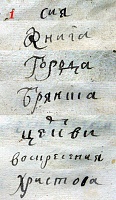 1 сия
Книга
Города
Брянца
да
церкви
воскресения
Христова